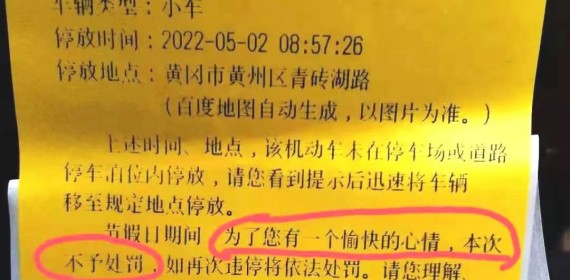 车辆类型：小车
停放时间：2022-05-02 08:57:26
停放地点：黄冈市黄州区青砖湖路
（百度地图自动生成，以图片为准。）
上述时间、地点，该机动车未在停车场或道路
停车泊位内停放，请您看到提示后迅速将车辆
移至规定地点停放。
节假日期间，为了您有一个愉快的心情，本次
不予处罚，如再次违停将依法处罚。请您理解、